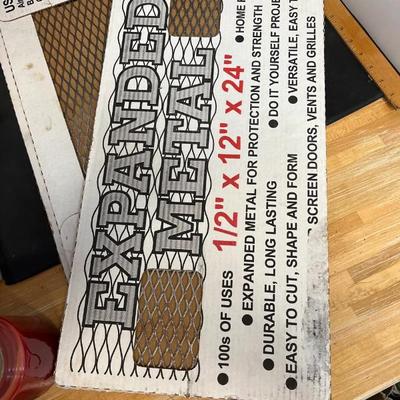 EXPANDED
METAL
1/2" x 12" x 24"
● 100s OF USES
● EXPANDED METAL FOR PROTECTION AND STRENGTH
● DURABLE, LONG LASTING
● EASY TO CUT, SHAPE AND FORM
● HOME
● DO IT YOURSELF
● VERSATILE, EASY
SCREEN DOORS, VENTS AND GRILLES
US